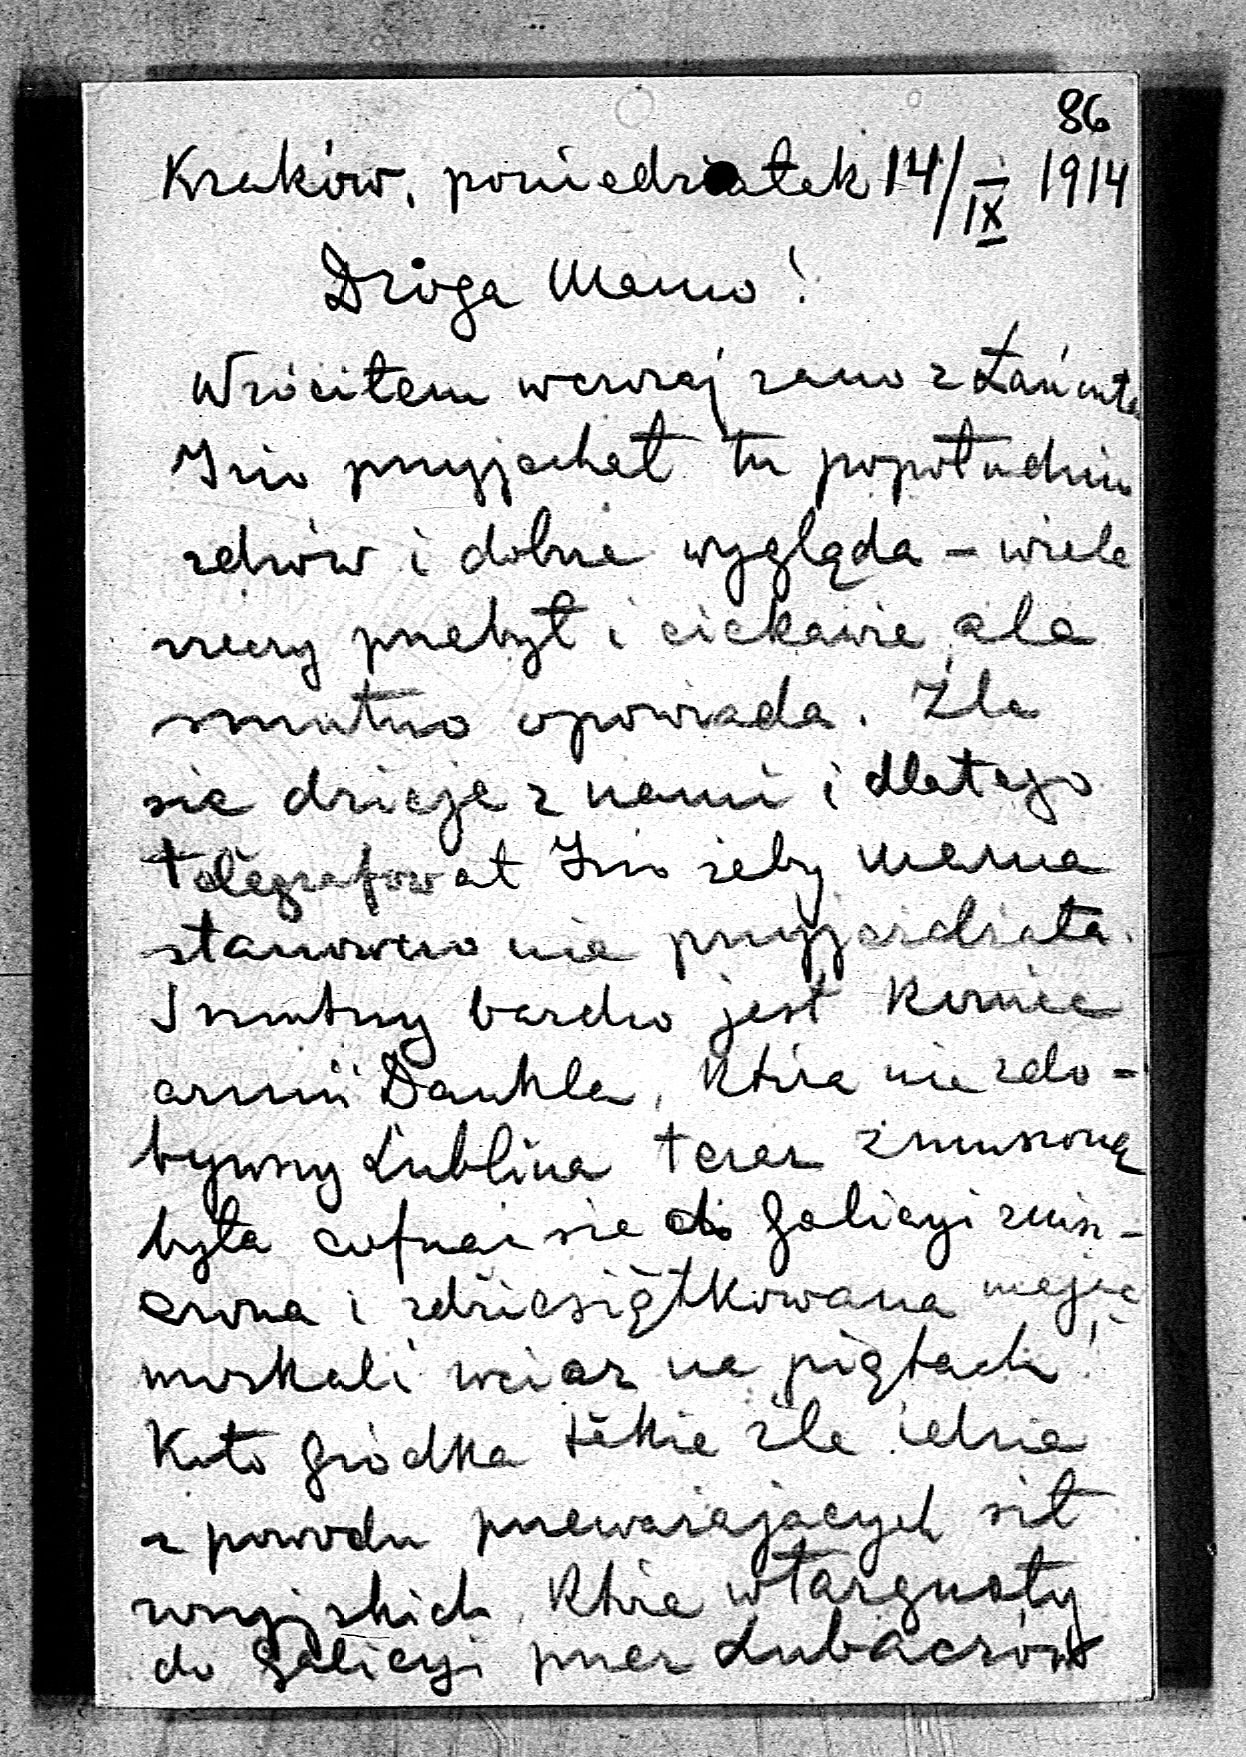 86
Kraków, poniedziałek 14/IX 1914
Droga Mamo!
Wróciłem wczoraj rano z Łańcuta
Inio przyjechał tu popołudniu
zdrów i dobrze wygląda – wiele
rzeczy przebył i ciekawie ale
smutno opowiada. Źle
się dzieje z nami i dlatego
telegrafował Inio żeby Mama
stanowczo nie przyjeżdżała.
Smutny bardzo jest koniec
armii Dankla, która nie zdo-
bywszy Lublina teraz zmuszoną
była cofnąć się do Galicyi znisz-
czona i zdziesiątkowana mając
moskali wciąż na piętach!
Koło Gródka także źle idzie
z powodu przeważających sił
rosyjskich, które wtargnęły
do Galicyi przez Lubaczów